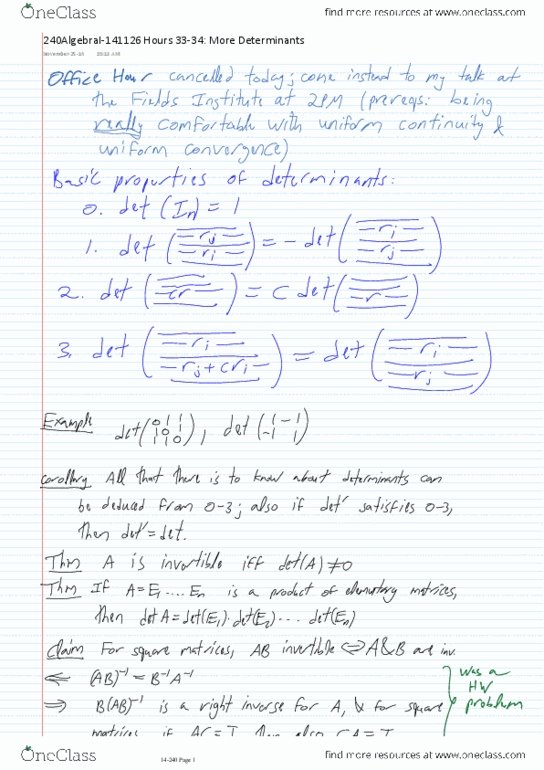 OneClass
find more resources at www.oneclass.com
240AlgebraI-141126 Hours 33-34: More Determinants
Office Hour cancelled today; come instead to my talk at
the Fields Institute at 2PM (prereqs: being
really comfortable with uniform continuity &
uniform convergence)
Basic properties of determinants:
0. det (In) = 1
1. det ( rj ri ) = - det ( ri rj )
2. det ( cr ) = c det ( r )
3. det ( ri rj + cri ) = det ( ri rj )
Example det ( 0 1 1 1 0 1 1 1 0 ), det ( 1 -1 -1 1 )
corollary All that there is to know about determinants can
be deduced from 0-3; also if det' satisfies 0-3,
then det' = det.
Thm A is invertible iff det(A) ≠ 0
Thm If A = E1 ..... En is a product of elementary matrices,
then det A = det(E1)·det(E2)· ··· det(En)
Claim For square matrices, AB invertible ⇔ A & B are inv.
⇐ (AB)⁻¹ = B⁻¹A⁻¹
⇒ B(AB)⁻¹ is a right inverse for A, & for square
was a
HW
problem
matrices if AC = I then also CA = I
OneClass
14-240 Page 1
find more resources at www.oneclass.com